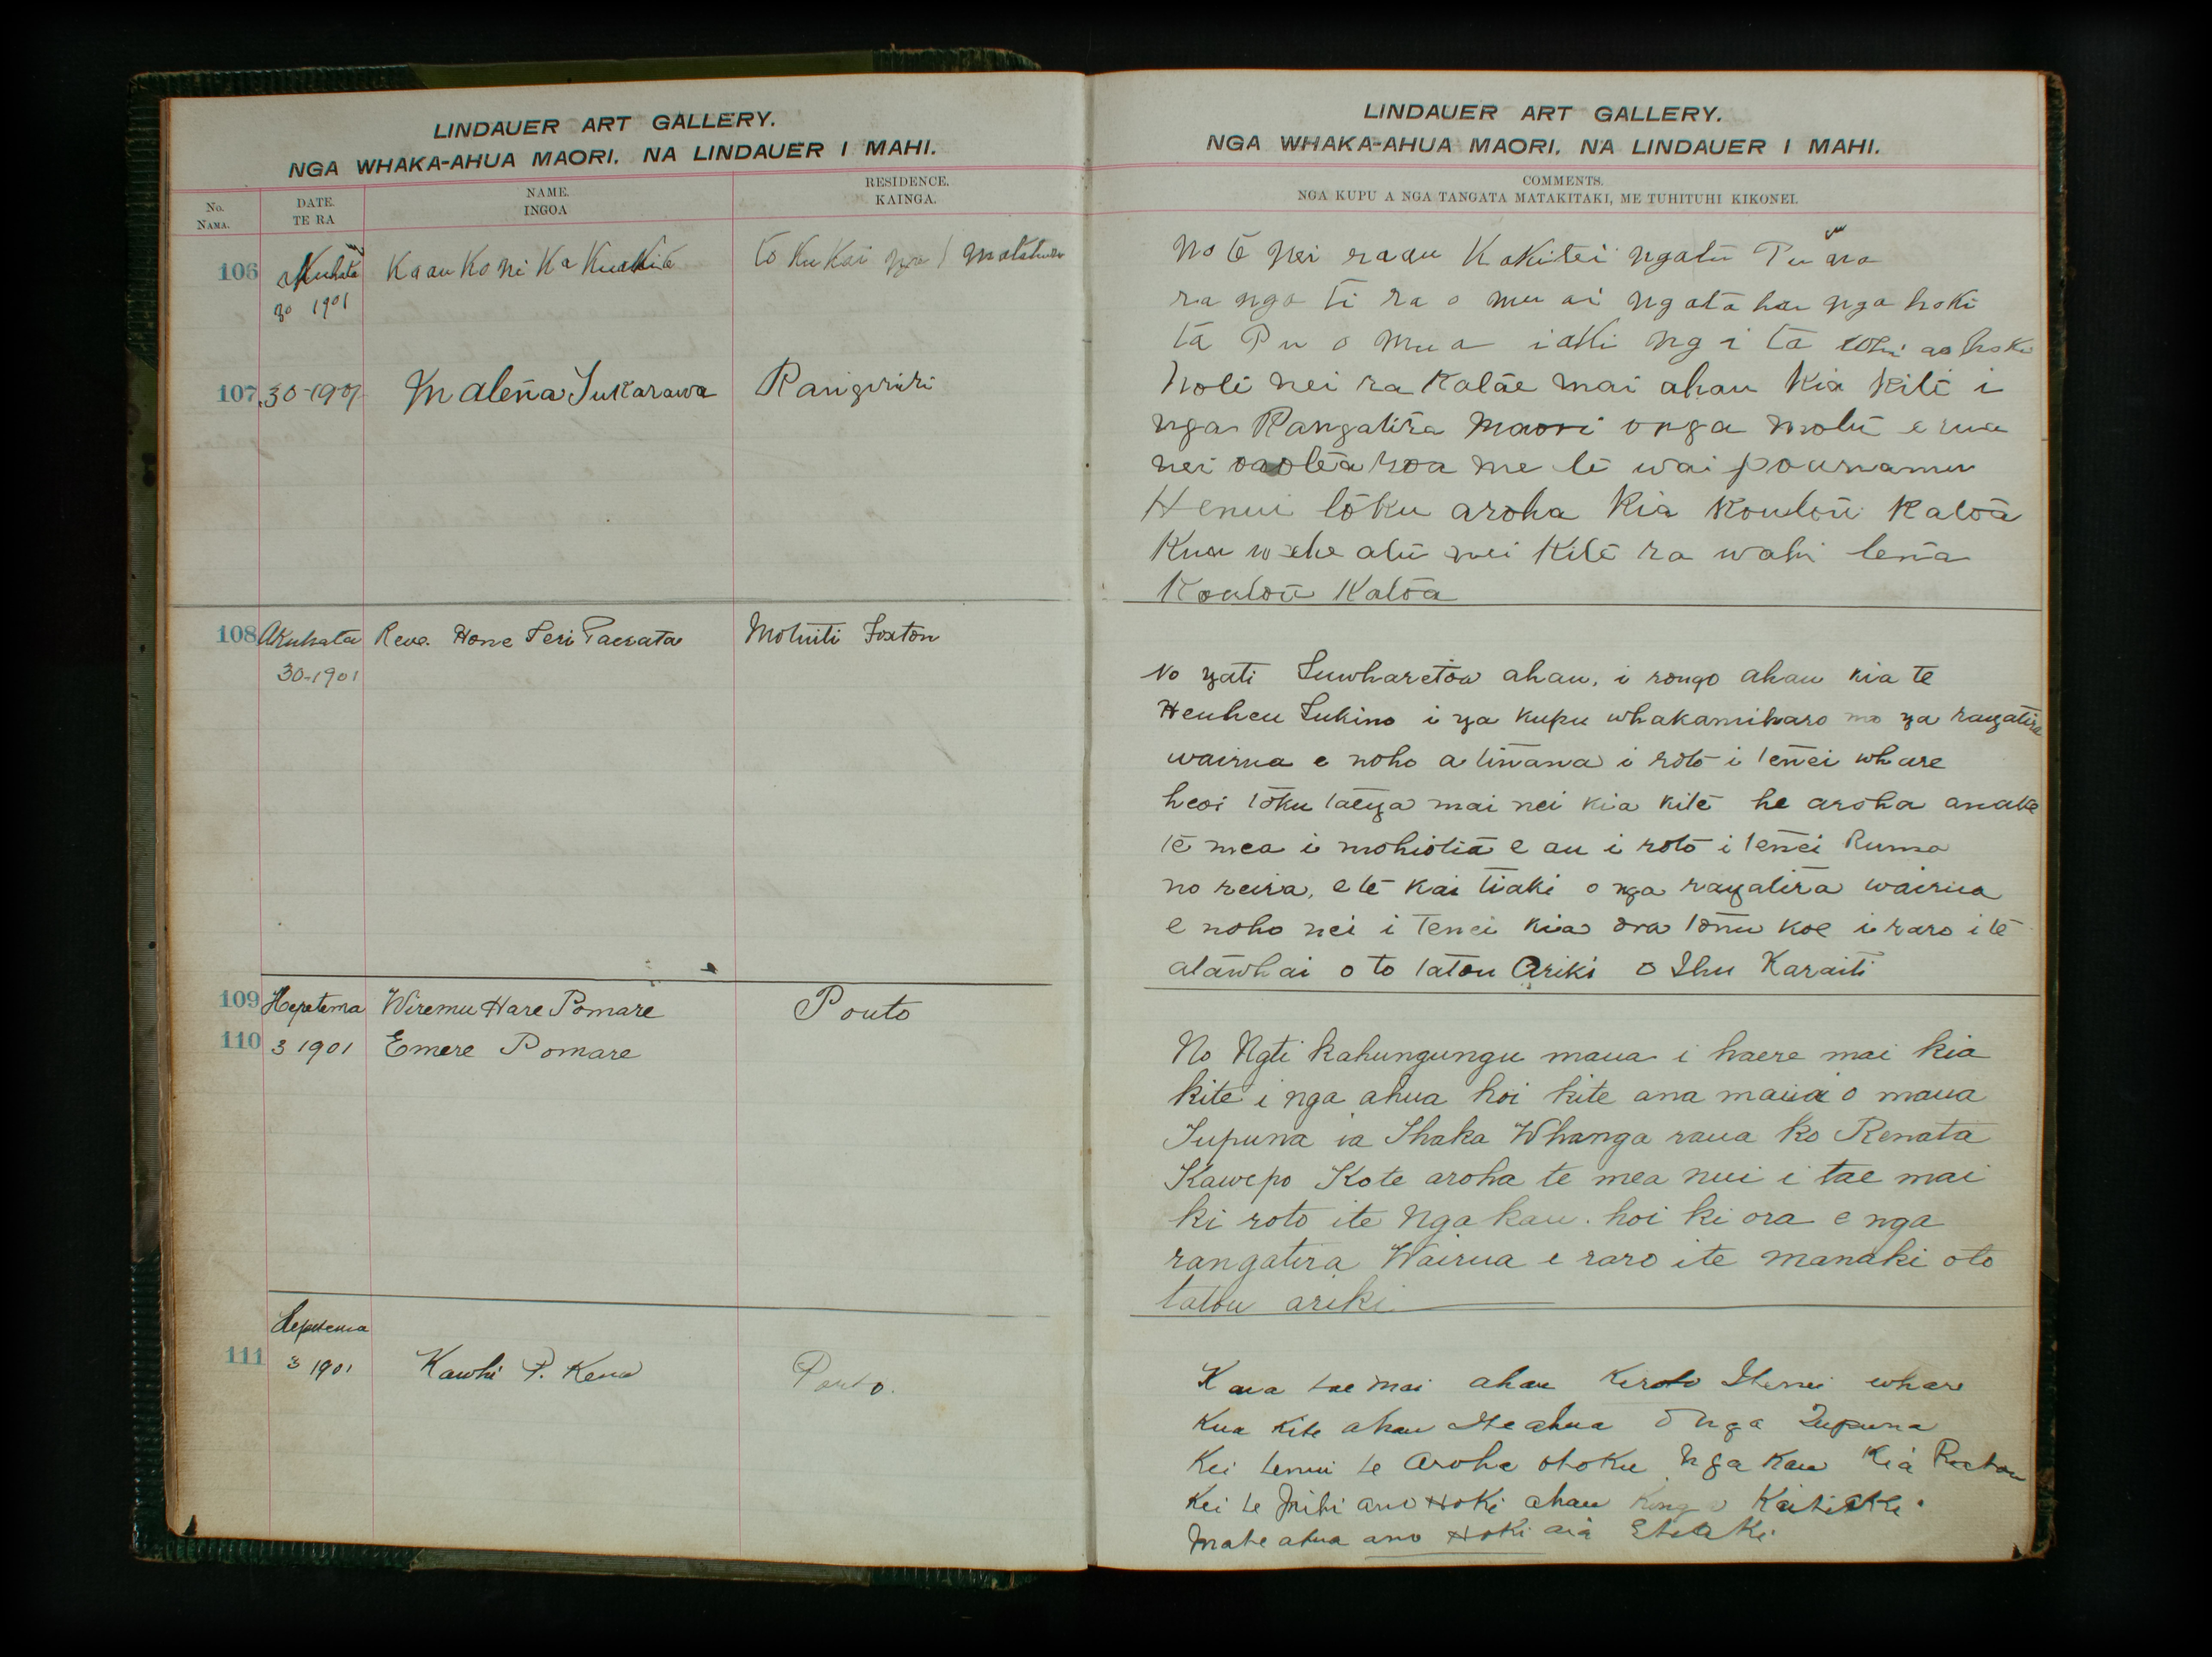 LINDAUER ART GALLERY.
NGA WHAKA-AHUA MAORI. NA LINDAUER I MAHI.
No. NAMA. DATE. TE RA NAME. INGOA RESIDENCE. KAINGA.
106 Akuhata Ka au Ko ni Ka Kuakite to Ku Kai
30 1901
107 30-1901 Malena Tukarawa Rangiriri
108 Akuhata Reve. Hone Teri Paerata Motuiti Foxton
30-1901
109 Hepetema Wiremu Hare Pomare Pouto
110 3 1901 Emere Pomare
Hepetema
111 3 1901 Kawhi P. Kena Pouto.
LINDAUER ART GALLERY.
NGA WHAKA-AHUA MAORI. NA LINDAUER I MAHI.
COMMENTS.
NGA KUPU A NGA TANGATA MATAKITAKI, ME TUHITUHI KIKONEI.
No te nei ra au Ka Kitei ngatu Pu na
ra nga ti ra o mu ai ngata hau nga hoki
ta Pu o mua i aki ng i ta hoki
Note nei ra Katae mai ahau Kia Kite i
nga Rangatira Maori onga motu e rua
nei me te wai pounamu
He nui toku aroha Kia Koutou Katoa
Kua wehe atu nei Kite ra wahi tena
Koutou Katoa
No gati Tuwharetoa ahau, i rongo ahau kia te
Heuheu Tukino i ga kupu whakamiharo mo ga ragatira
wairua e noho a tinana i roto i tenei whare
heoi toku taega mai nei kia kite he aroha anake
te mea i mohiotia e au i roto i tenei Ruma
no reira, e te kai tiaki o nga ragatira wairua
e noho nei i Tenei kia ora tonu koe i raro i te
atawhai o to tatou Ariki o Ihu Karaiti
No Ngti Kahungungu maua i haere mai kia
kite i nga ahua hoi kite ana maua o maua
Tupuna ia Ihaka Whanga raua ko Renata
Kawepo Kote aroha te mea nui i tae mai
ki roto ite Ngakau. hoi ki ora e nga
rangatira Wairua e raro ite manaki oto
tatou ariki
Kaua tae mai ahau Kiroto Itenei whare
Kua Kite ahau Ite ahua O nga Tupuna
Kei tenui te Aroha otoku Nga Kau Kia Ratou
Kei te Mihi ano Hoki ahau Kinga Kaitiaki.
Mate atua ano Hoki aia Etiaki